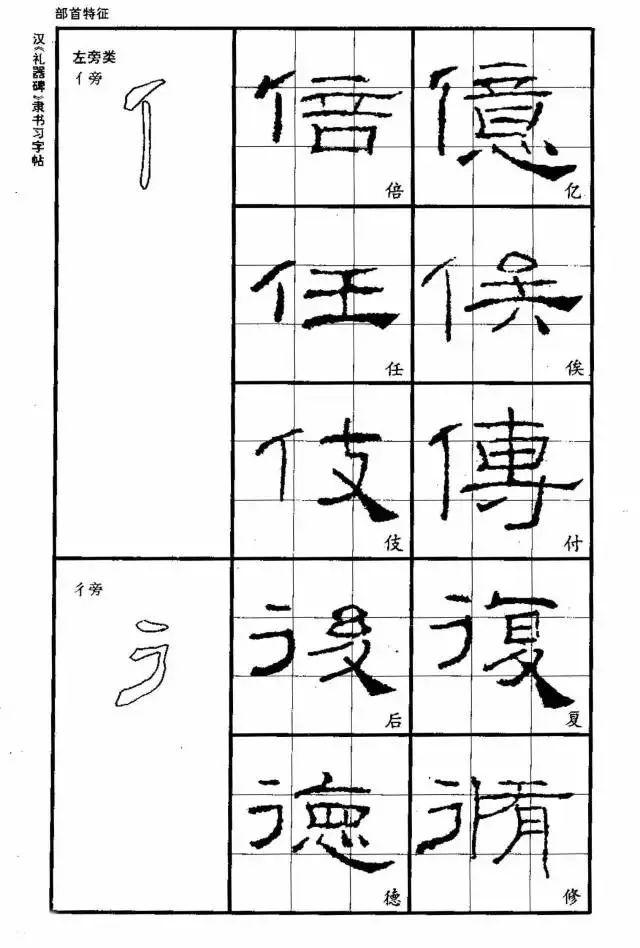 部首特征
汉《礼器碑》隶书习字帖
左旁类
亻旁
倍 億
倍 亿
任 俟
任 俟
伎 傳
伎 付
彳旁
後 復
后 复
德 脩
德 修